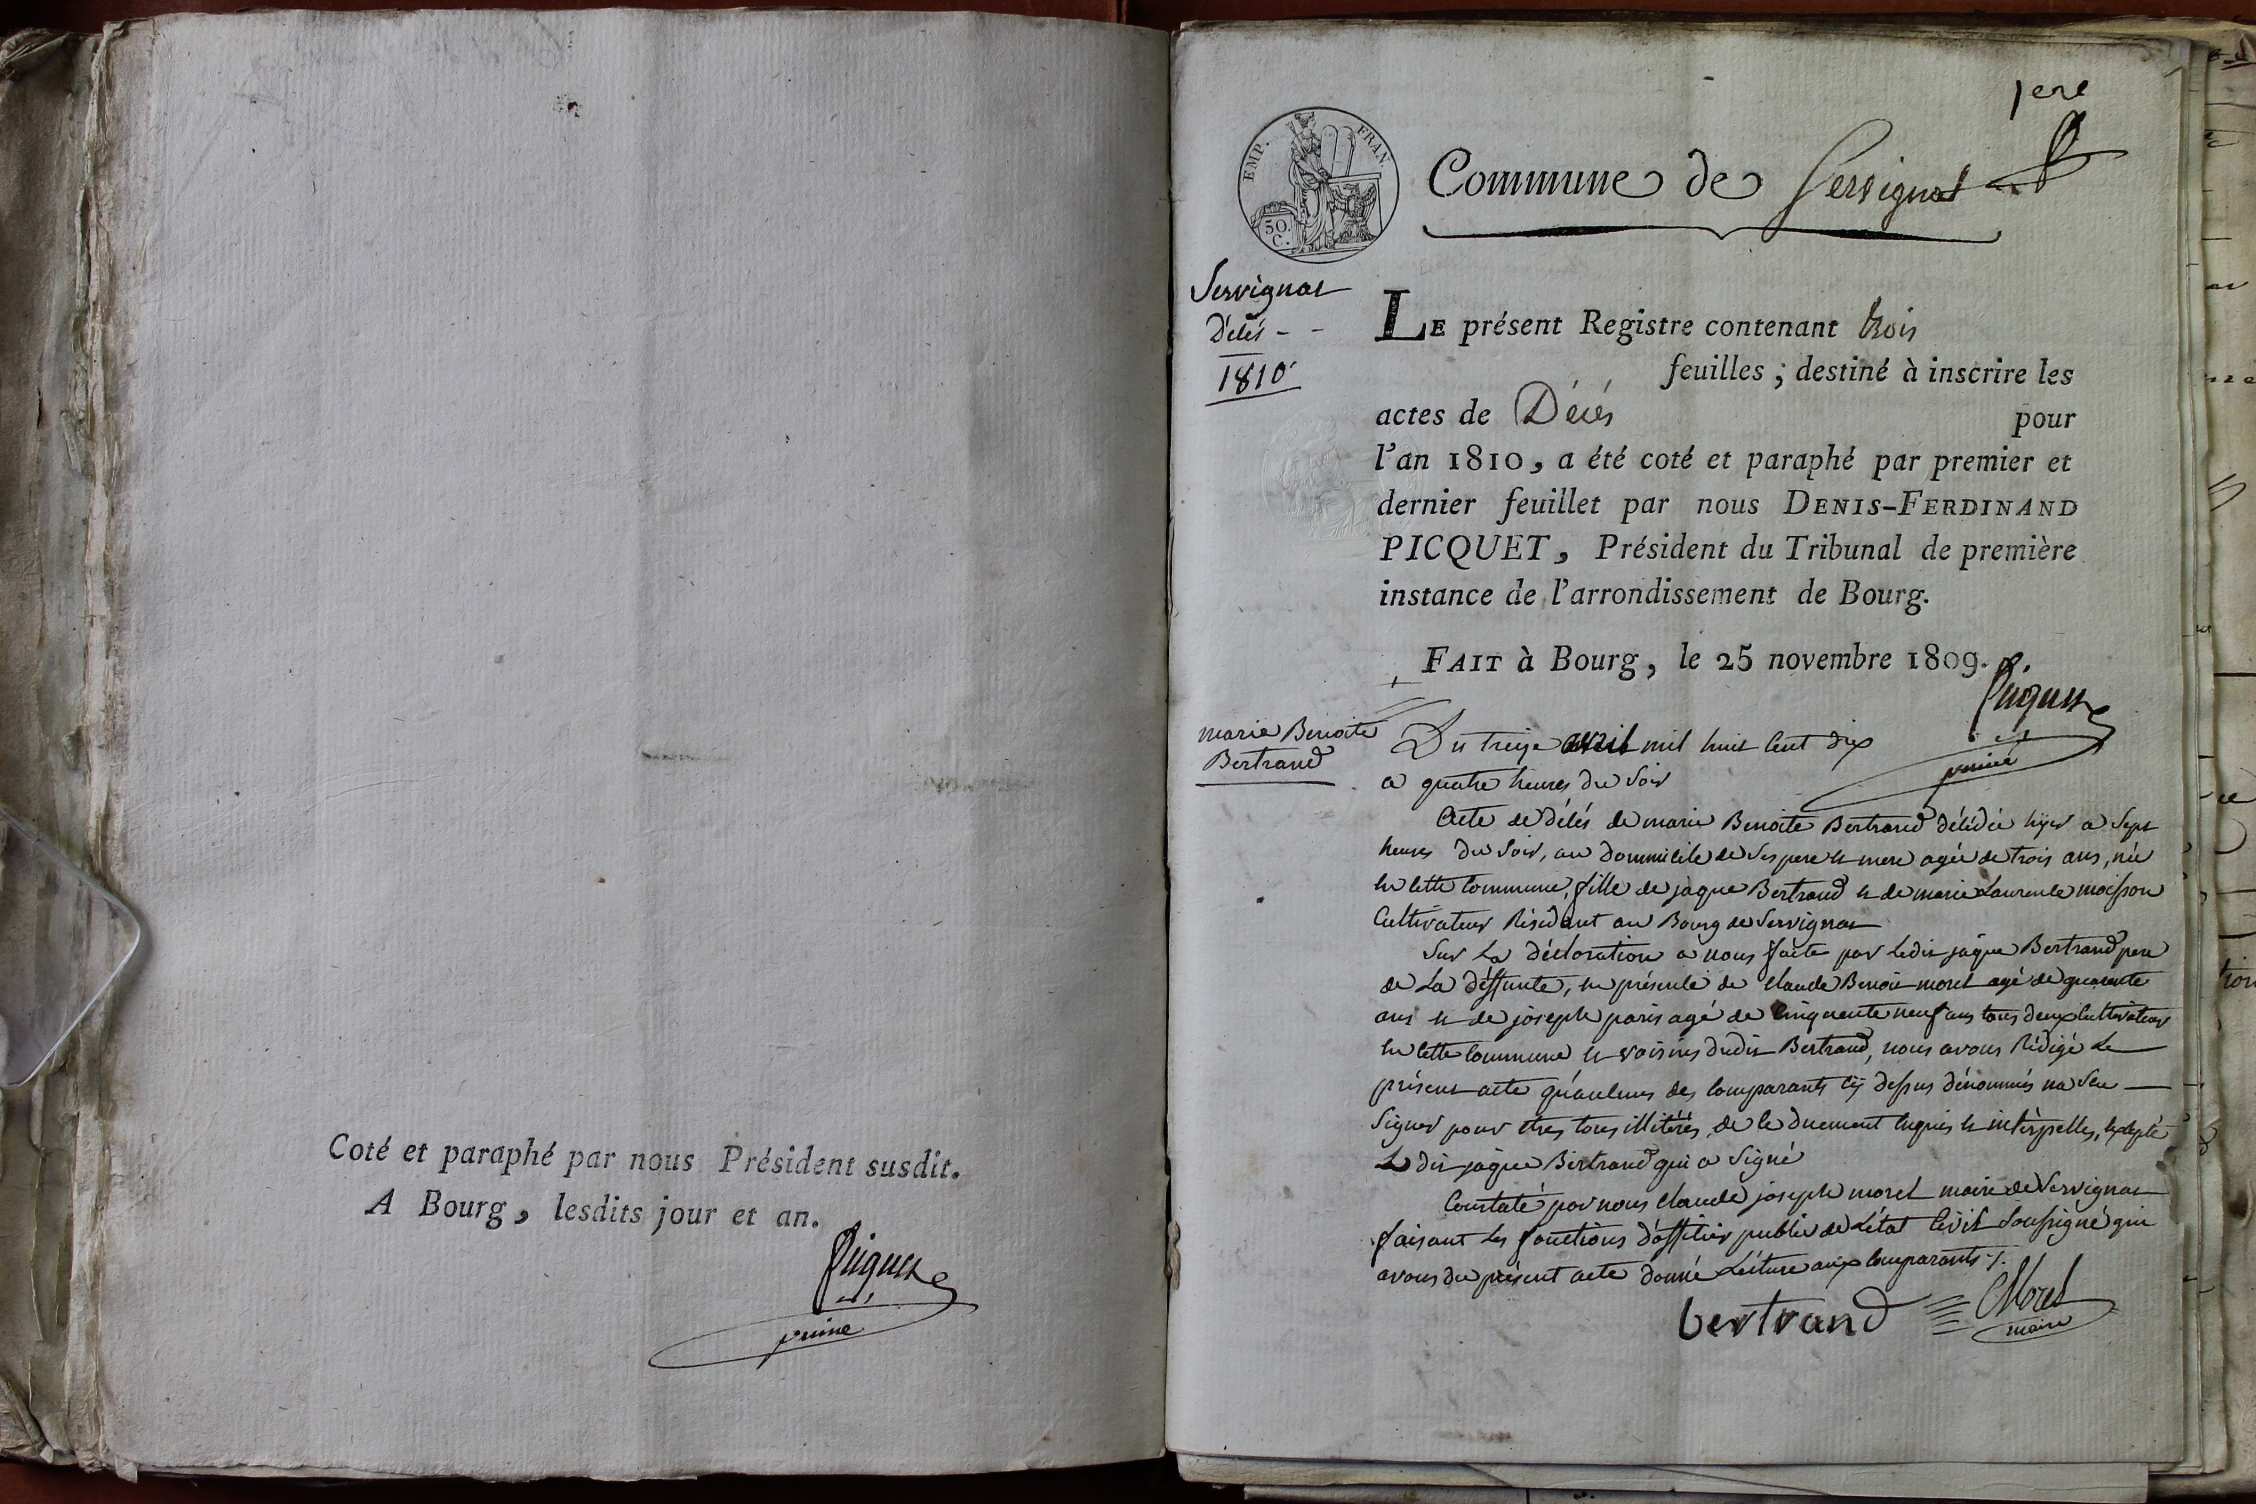 Coté et paraphé par nous Président susdit.
A Bourg, lesdits jour et an.
Picquet
1ere
EMP. FRAN
50.
C.
Commune de Servignat
Servignat
Décés
1810
LE présent Registre contenant trois
feuilles ; destiné à inscrire les
actes de Décés pour
l'an 1810, a été coté et paraphé par premier et
dernier feuillet par nous DENIS-FERDINAND
PICQUET, Président du Tribunal de première
instance de l'arrondissement de Bourg.
FAIT à Bourg, le 25 novembre 1809.
Picquet
marie Benoite
Bertrand
Du treize avril mil huit cent dix
a quatre heures du soir
Acte de décés de marie Benoite Bertrand décédée hyer a sept
heures du soir, au dommicile de ses pere et mere agée de trois ans, née
en cette commune, fille de jaque Bertrand et de marie Laurence moisson
Cultivateur Résidant au Bourg de Servignat
Sur La déclaration a nous faite par ledit jaque Bertrand pere
de La déffunte, en présence de claude Benoit morel agé de quarente
ans et de joseph paris agé de cinquente neuf ans tous deux cultivateurs
en cette commune et voisins dudit Bertrand, nous avons Rédigé Le
présent acte qu'aulcuns des comparants cy dessus dénommés na seu
signer pour etres tous illitérés, de ce duement enquis et interpelles, excepté
Le dit jaque Bertrand qui a signé
Constaté par nous claude joseph morel maire de Servignat
faisant les fonctions d'officier public de L'état civil soussigné qui
avons du présent acte donné Lecture aux comparants ./.
bertrand Morel
maire